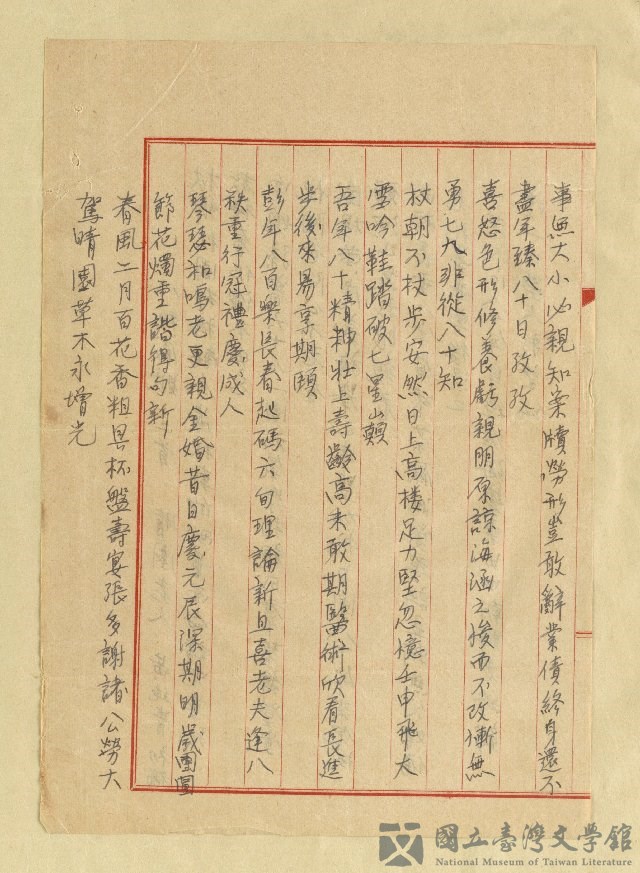 事無大小必親知案牘勞形豈敢辭業債終身還不
盡年臻八十日孜孜
喜怒色形修養虧親朋原諒海涵之悛而不改慚無
勇七九非從八十知
杖朝不杖步安然日上高樓足力堅忽憶壬申飛大
雪吟鞋踏破七星山巔
吾年八十精神壯上壽齡高未敢期醫術欣看長進
步後來易享期頤
彭年八百樂長春起碼六旬理論新且喜老夫逢八
秩重行冠禮慶成人
琴瑟和鳴老更親金婚昔日慶元辰深期明歲團圓
節花燭重諧得句新
春風二月百花香粗具杯盤壽宴張多謝諸公勞大
駕晴園草木永增光
國立臺灣文學館
National Museum of Taiwan Literature